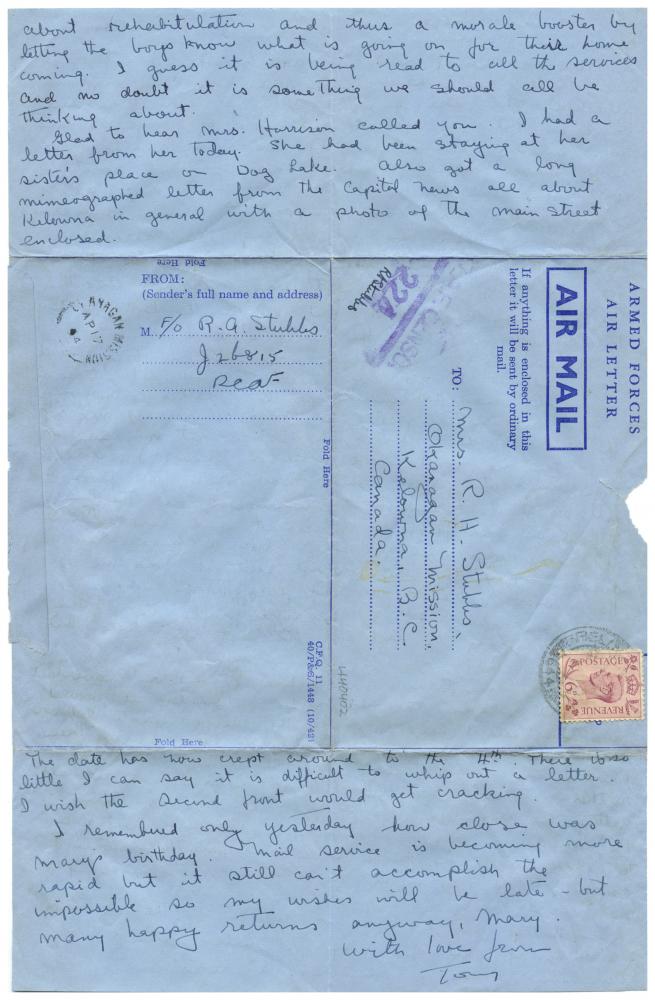 about rehabitulation and thus a morale booster by
letting the boys know what is going on for their home
coming. I guess it is being read to all the services
and no doubt it is something we should all be
thinking about.
Glad to hear Mrs. Harrison called you. I had a
letter from her today. She had been staying at her
sister's place on Dog Lake. Also got a long
mimeographed letter from the Capital News all about
Kelowna in general with a photo of the main street
enclosed.
Fold Here
FROM:
(Sender's full name and address)
M. F/O R.A. Stubbs
J26815
RCAF
AP 17
Fold Here
C.F.Q. 11
40/P&S/1448 (10/42)
Fold Here
ARMED FORCES
AIR LETTER
AIR MAIL
If anything is enclosed in this
letter it will be sent by ordinary
mail.
224
RAStubbs
TO: Mrs. R. H. Stubbs,
Okanagan Mission,
Kelowna, B.C.
Canada.
440402
POSTAGE
6D
REVENUE
The date has now crept around to the 4th. There is so
little I can say it is difficult to whip out a letter.
I wish the second front would get cracking.
I remembered only yesterday how close was
Mary's birthday. Mail service is becoming more
rapid but it still can't accomplish the
impossible so my wishes will be late - but
many happy returns anyway, Mary.
With love from
Tony